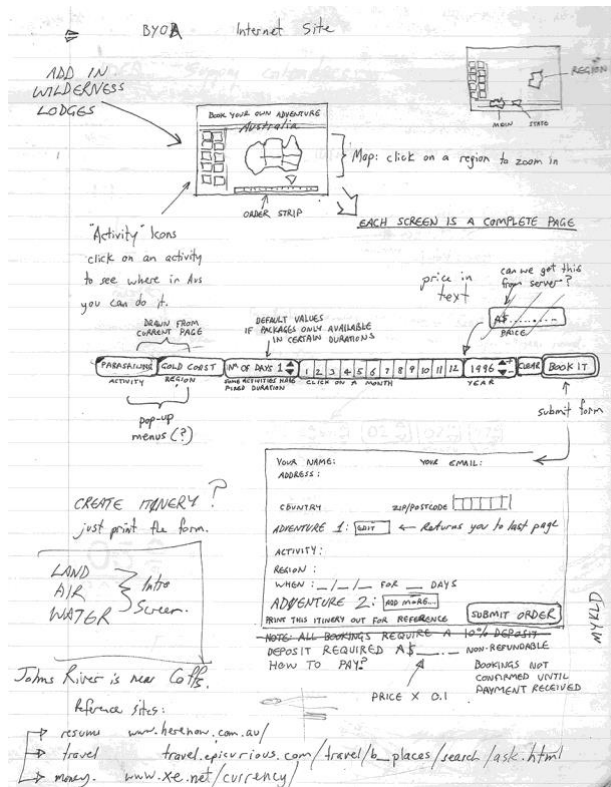 BYOA Internet Site
ADD IN
WILDERNESS
LODGES
REGION
MAIN
STATE
BOOK YOUR OWN ADVENTURE
Australia
Map: click on a region to zoom in
ORDER STRIP
EACH SCREEN IS A COMPLETE PAGE
"Activity" Icons
click on an activity
to see where in Aus
you can do it.
price in
text
can we get this
from server?
A$.........
PRICE
DRAWN FROM
CURRENT PAGE
DEFAULT VALUES
IF PACKAGES ONLY AVAILABLE
IN CERTAIN DURATIONS
PARASAILING GOLD COAST Nº OF DAYS 1 1 2 3 4 5 6 7 8 9 10 11 12 1996 + - CLEAR BOOK IT
ACTIVITY REGION SOME ACTIVITIES HAVE CLICK ON A MONTH YEAR
FIXED DURATION
pop-up
menus (?)
submit form
YOUR NAME: YOUR EMAIL:
ADDRESS:
COUNTRY ZIP/POSTCODE
ADVENTURE 1: EDIT ← Returns you to last page
ACTIVITY:
REGION:
WHEN: _/_/_ FOR _ DAYS
ADVENTURE 2: ADD MORE...
PRINT THIS ITINERY OUT FOR REFERENCE SUBMIT ORDER
NOTE: ALL BOOKINGS REQUIRE A 10% DEPOSIT
DEPOSIT REQUIRED A$__.__ NON-REFUNDABLE
HOW TO PAY?
BOOKINGS NOT
CONFIRMED UNTIL
PAYMENT RECEIVED
PRICE X 0.1
MYKLD
CREATE ITINERY?
just print the form.
LAND
AIR
WATER
Intro
Screen.
Johns River is near Coffs.
Reference sites:
resume www.herenow.com.au/
travel travel.epicurious.com/travel/b_places/search/ask.html
money. www.xe.net/currency/